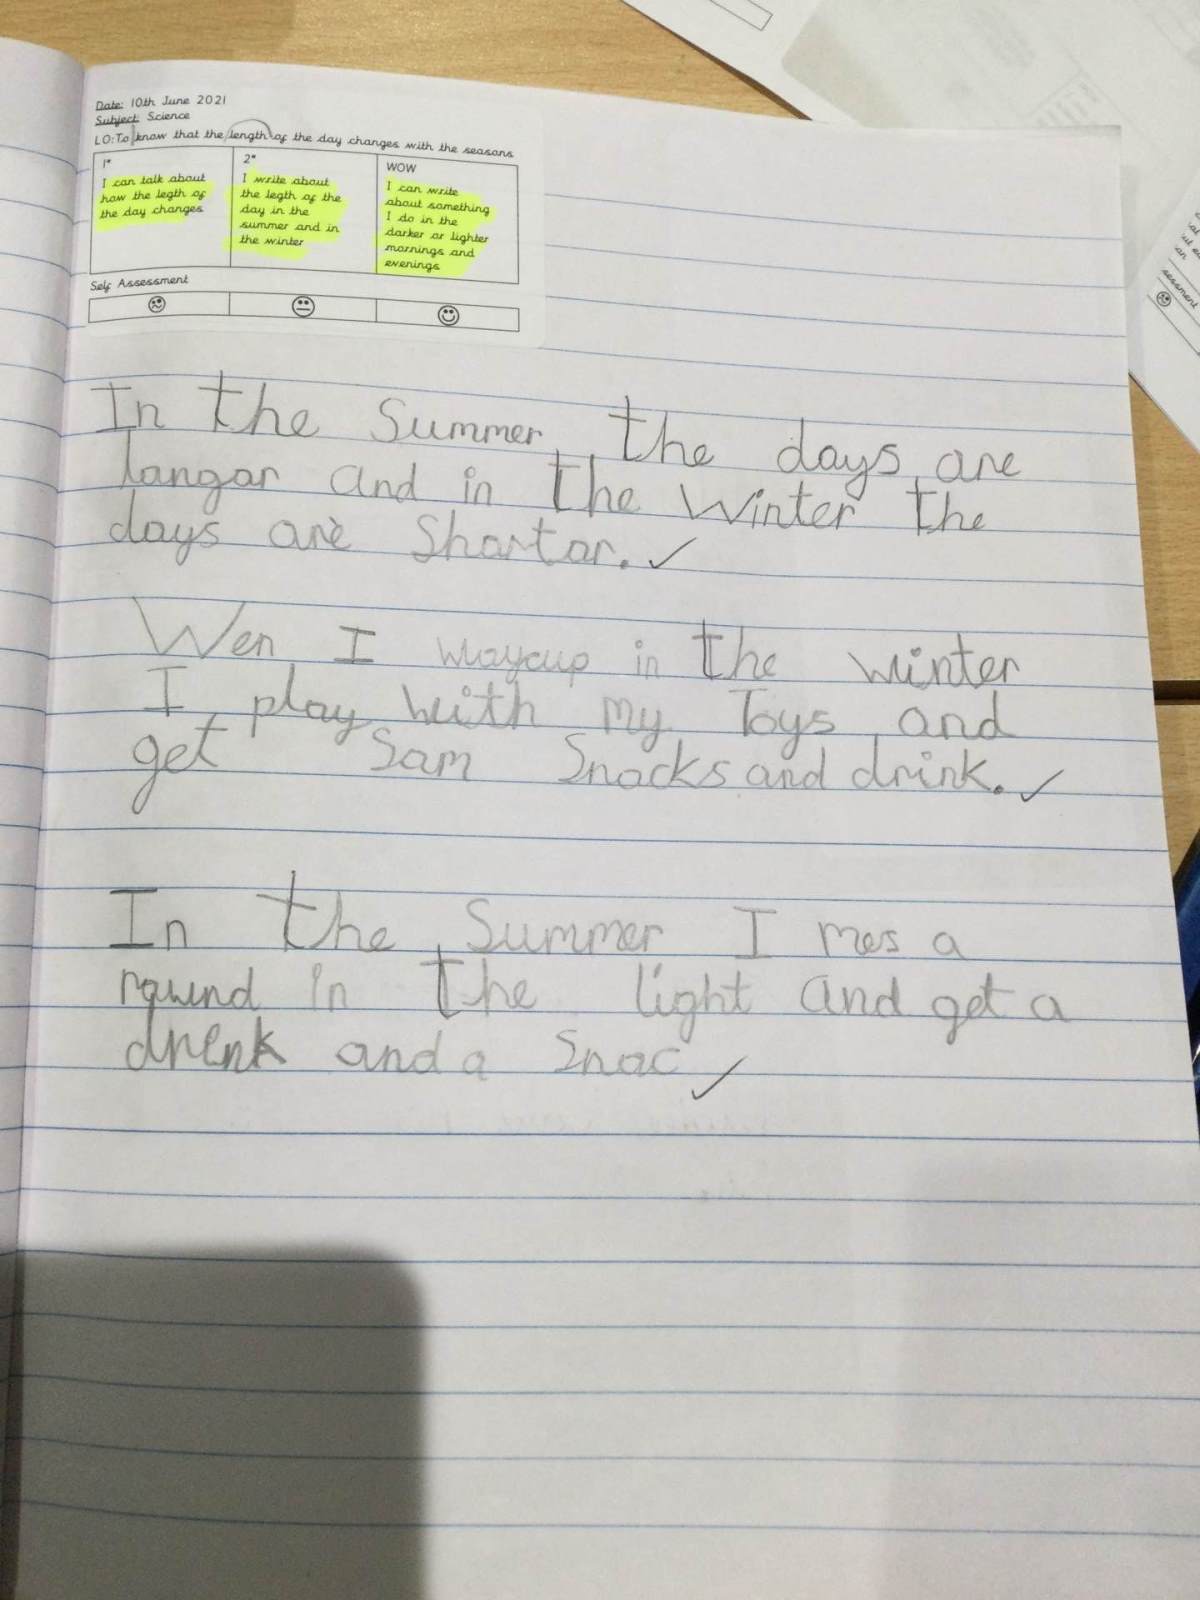 Date: 10th June 2021
Subject: Science
LO: To know that the length of the day changes with the seasons
1*
I can talk about
how the legth of
the day changes
2*
I write about
the legth of the
day in the
summer and in
the winter
WOW
I can write
about something
I do in the
darker or lighter
mornings and
evenings
Self Assessment
In the Summer the days are
langar and in the Winter the
days are Shartar.
Wen I waycup in the winter
I play with my Toys and
get Sam Snacks and drink.
In the Summer I mes a
round in the light and get a
drenk and a Snac
sessment